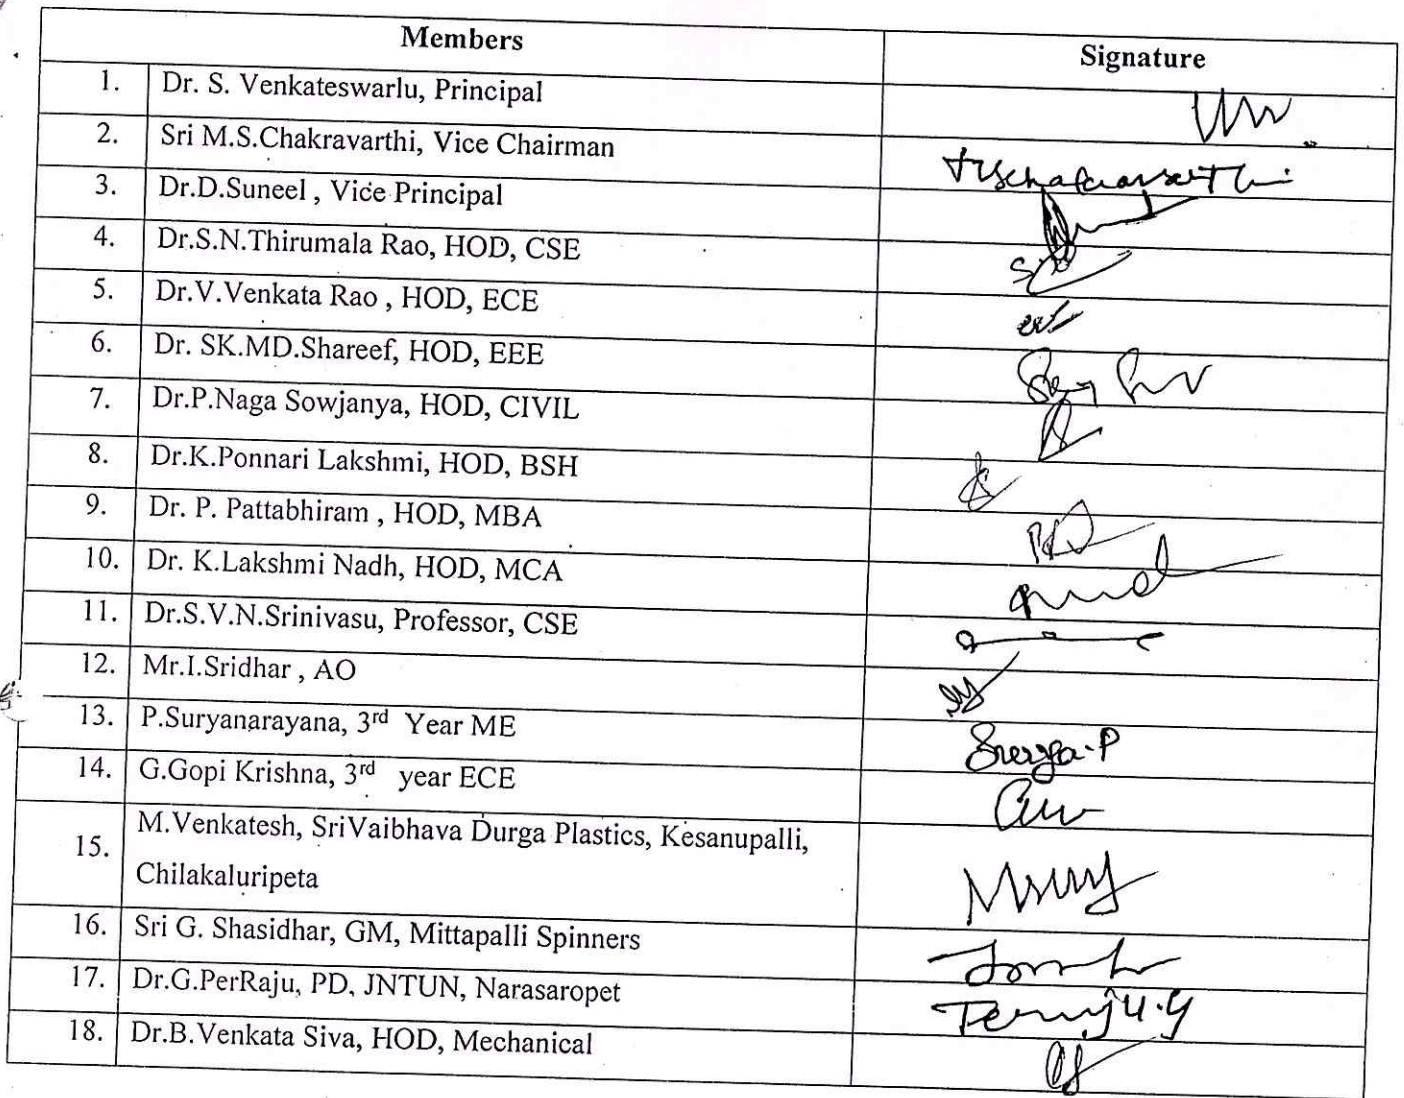 Members Signature
1. Dr. S. Venkateswarlu, Principal
2. Sri M.S.Chakravarthi, Vice Chairman
3. Dr.D.Suneel , Vice Principal
4. Dr.S.N.Thirumala Rao, HOD, CSE
5. Dr.V.Venkata Rao , HOD, ECE
6. Dr. SK.MD.Shareef, HOD, EEE
7. Dr.P.Naga Sowjanya, HOD, CIVIL
8. Dr.K.Ponnari Lakshmi, HOD, BSH
9. Dr. P. Pattabhiram , HOD, MBA
10. Dr. K.Lakshmi Nadh, HOD, MCA
11. Dr.S.V.N.Srinivasu, Professor, CSE
12. Mr.I.Sridhar , AO
13. P.Suryanarayana, 3rd Year ME Surya.P
14. G.Gopi Krishna, 3rd year ECE
M.Venkatesh, SriVaibhava Durga Plastics, Kesanupalli,
15.
Chilakaluripeta
16. Sri G. Shasidhar, GM, Mittapalli Spinners
17. Dr.G.PerRaju, PD, JNTUN, Narasaropet
18. Dr.B.Venkata Siva, HOD, Mechanical